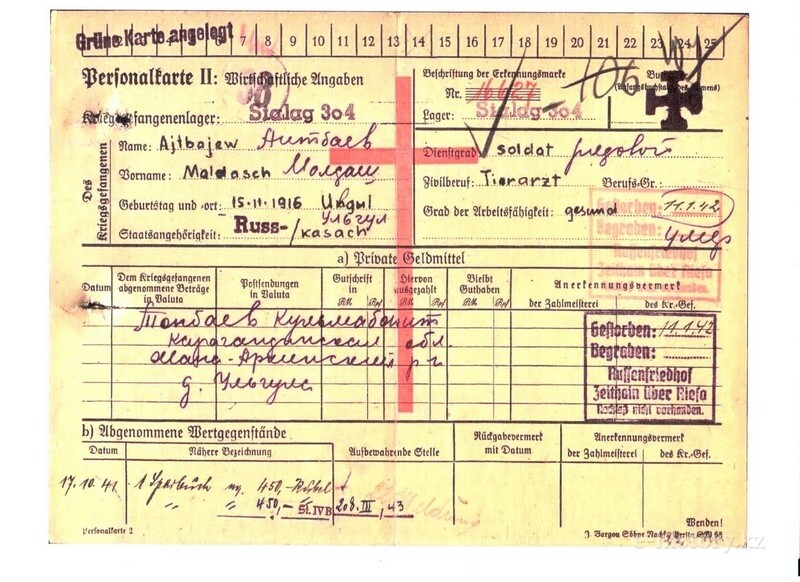 Grüne Karte angelegt
6 7 8 9 10 11 12 13 14 15 16 17 18 19 20 21 22 23 24 25
Personalkarte II: Wirtschaftliche Angaben
Beschriftung der Erkennungsmarke
Nr. 16627
106
Kriegsgefangenenlager: Stalag 304
Lager: Stalag 304
Des Kriegsgefangenen
Name: Ajtbajew Аитбаев
Dienstgrad: soldat рядовой
Vorname: Maldasch Молдаш
Zivilberuf: Tierarzt Berufs-Gr.:
Geburtstag und -ort: 15.11.1916 Ungul Ульгул
Grad der Arbeitsfähigkeit: gesund
Staatsangehörigkeit: Russ-/kasach
Gestorben: 11.1.42
Begraben:
Russenfriedhof
Zeithain über Riesa
умер
a) Private Geldmittel
Datum
Dem Kriegsgefangenen abgenommene Beträge in Valuta
Postsendungen in Valuta
Gutschrift in
Hiervon ausgezahlt
Bleibt Guthaben
Anerkennungsvermerk
der Zahlmeisterei
des Kr.-Gef.
RM Rpf RM Rpf RM Rpf
Карагандинская обл.
д. Ульгуль
Gestorben: 11.1.42
Begraben:
Russenfriedhof
Zeithain über Riesa
Nachlaß nicht vorhanden.
b) Abgenommene Wertgegenstände
Datum
Nähere Bezeichnung
Aufbewahrende Stelle
Rückgabevermerk mit Datum
Anerkennungsvermerk
der Zahlmeisterei
des Kr.-Gef.
17.10.41 1 Sparbuch 450,- Rubel
" " 450,- St. IVB 208.III.43
Personalkarte 2
Wenden!
e-history.kz